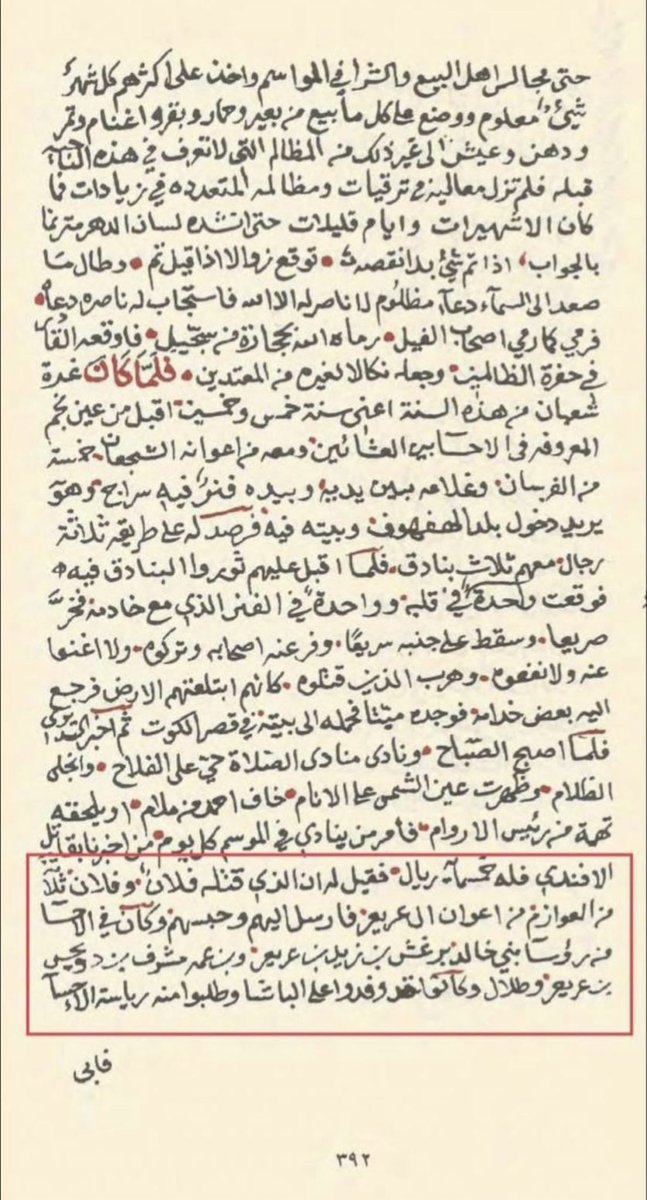 حتى مجالس اهل البيع والشرا في المواسم واخذ على اكثرهم كل شهر
شيئ معلوم ووضع على كل ما يبيع من بعير وحمار وبقر واغنام وتمر
ودهن وعيش الى غير ذلك من المظالم التي لا تعرف في هذه الناحية
قبله فلم تزل معاليه في ترقيات ومظالمه المتعدده في زيادات فما
كان الا شهيرات وايام قليلات حتى انشده لسان الدهر مترنما
بالجواب، اذا تم شيئ بدا نقصه • توقع زوالا اذا قيل تم • وطال ما
صعد الى السماء دعاء مظلوم لا ناصر له الا الله فاستجاب له ناصره دعاه •
فرمي كما رمي اصحاب الفيل • رماه الله بحجارة من سجيل • فاوقعه
في حفرة الظالمين • وجعله نكالا لغيره من المعتدين • فلما كان غرة
شعبان من هذه السنة اعني سنة خمس وخمسين اقبل من عين نجم
المعروفه في الاحسا بين العشائين ومعه من اعوانه الشجعان خمسة
من الفرسان • وغلامه بين يديه وبيده فنر فيه سراج • وهو
يريد دخول بلد الهفهوف • وبيته فيه فرصد له على طريقه ثلاثة
رجال • معهم ثلاث بنادق • فلما اقبل عليهم ثوروا البنادق فيه •
فوقعت واحدة في قلبه وواحدة في الفنر الذي مع خادمه فخر
صريعا • وسقط على جنبه سريعا • وفر عنه اصحابه وتركوه • ولا اغنوا
عنه ولا نفعوه • وهرب الذين قتلوه • كانهم ابتلعتهم الارض فرجع
اليه بعض خدامه فوجده ميتا فحمله الى بيته في قصر الكوت ثم اخبر
فلما اصبح الصباح • ونادى منادى الصلاة حي على الفلاح • وانجلى
الظلام • وظهرت عين الشمس على الانام • خاف احمد من ملام • او يلحقه
تهمة من رئيس الاروام • فامر من ينادي في الموسم كل يوم • من اخبرنا بقاتل
الافندي فله خمسمائة ريال • فقيل له ان الذي قتله فلان • وفلان
من العوازم من اعوان ال عريعر • فارسل اليهم وحبسهم • وكان في الاحسا
من رؤسا بني خالد برغش بن زيد بن عريعر • وبن عمه مشرف بن دويحس
بن عريعر • وطلال وكانوا قد وفدوا على الباشا وطلبوا منه رياسة الاحسا
فابى
٣٩٢